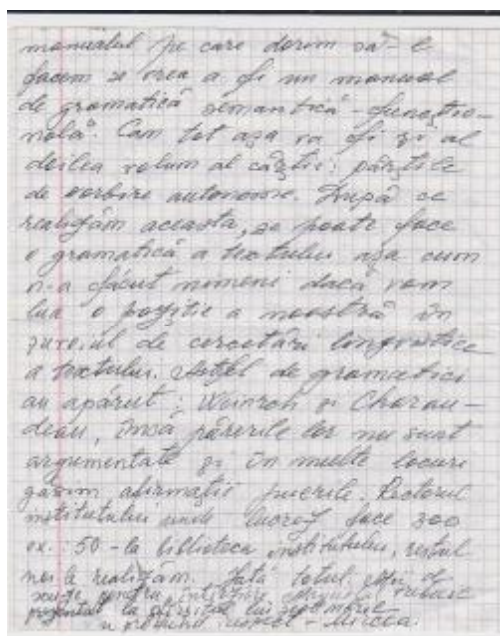 manualul pe care dorim să-l
facem se vrea a fi un manual
de gramatică semantică-funcțio-
nală. Cam tot așa va fi și al
doilea volum al cărții: părțile
de vorbire autonome. După ce
realizăm aceasta, se poate face
o gramatică a textului așa cum
n-a făcut nimeni dacă vom
lua o poziție a noastră în
de cercetări lingvistice
a textului. Astfel de gramatici
au apărut: Weinrich și Charau-
deau, însă părerile lor nu sunt
argumentate și în multe locuri
găsim afirmații puerile. Rectorul
institutului unde lucrez face 300
ex.: 50 - la biblioteca institutului, restul
noi le realizăm. Iată totul.
pentru
la sfârșitul lui septembrie
- Mircea.